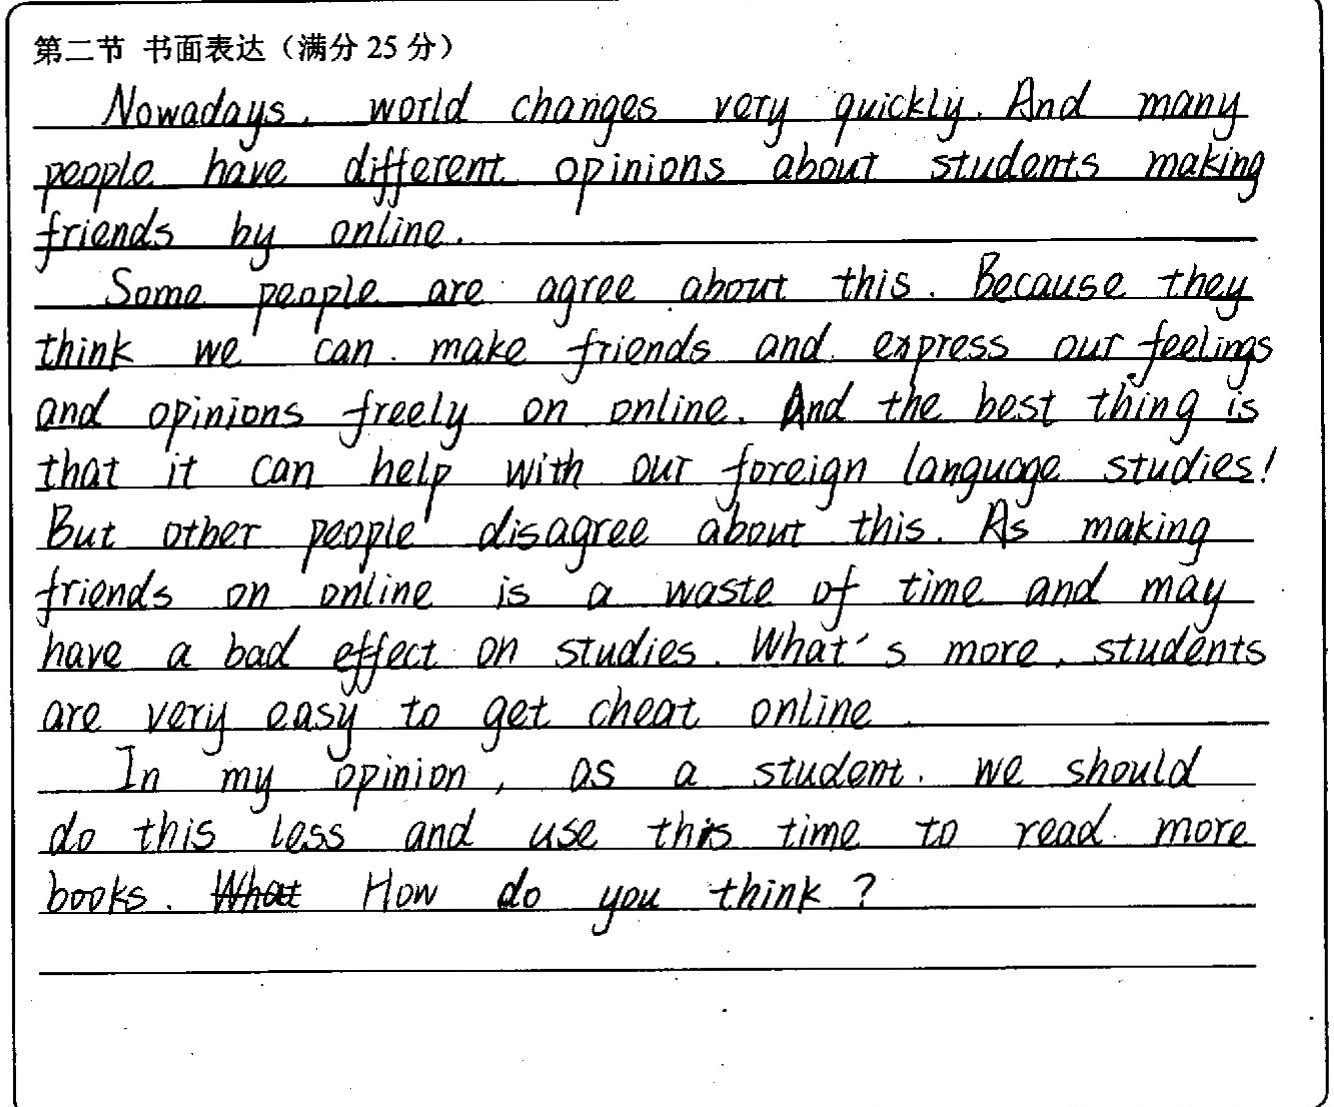 第二节 书面表达（满分 25 分）
Nowadays, world changes very quickly. And many
people have different opinions about students making
friends by online.
Some people are agree about this. Because they
think we can make friends and express our feelings
and opinions freely on online. And the best thing is
that it can help with our foreign language studies!
But other people disagree about this. As making
friends on online is a waste of time and may
have a bad effect on studies. What's more, students
are very easy to get cheat online.
In my opinion, as a student, we should
do this less and use this time to read more
books. What How do you think?